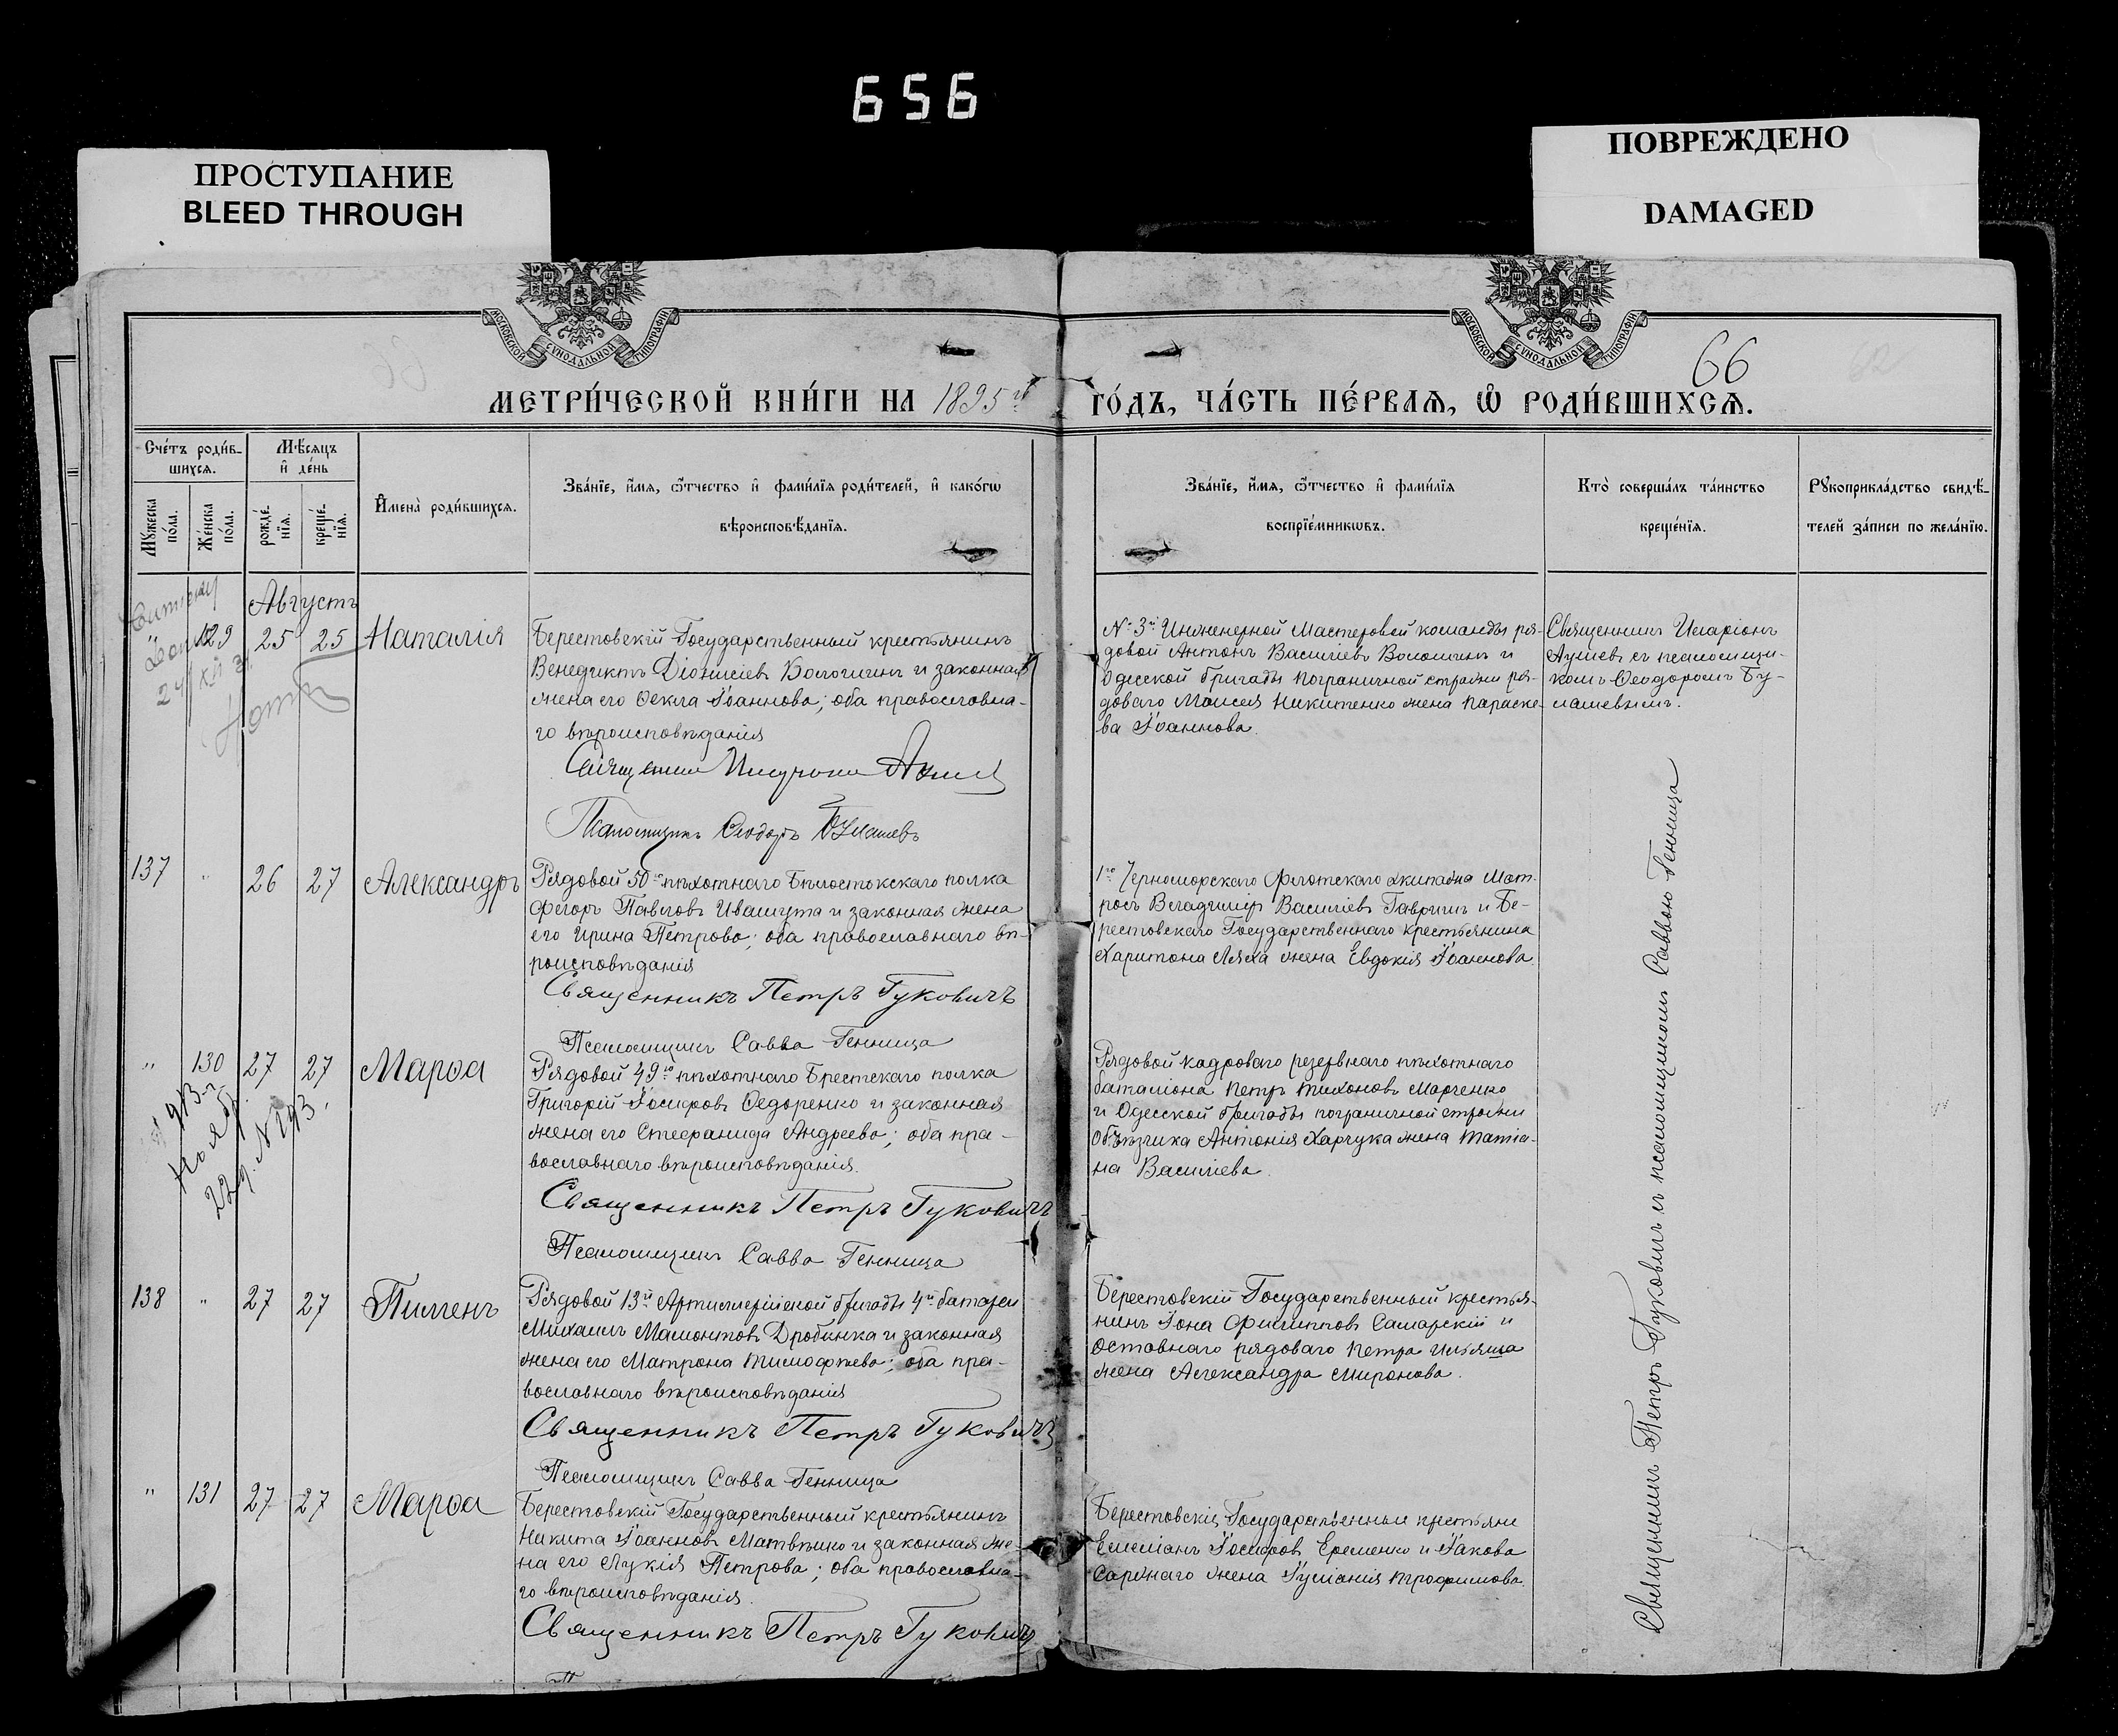 656
ПРОСТУПАНИЕ
BLEED THROUGH
ПОВРЕЖДЕНО
DAMAGED
МОСКОВСКОЙ СѴНОДАЛЬНОЙ ТИПОГРАФІИ
МОСКОВСКОЙ СѴНОДАЛЬНОЙ ТИПОГРАФІИ
66
МЕТРИ́ЧЕСКОЙ КНИ́ГИ НА 1895 ГО́ДЪ, ЧА́СТЬ ПЕ́РВАѦ, Ѡ҆ РОДИ́ВШИХСѦ.
Сче́тъ роди́в-
шихсѧ.
Мꙋ́жеска по́ла.
Же́нска по́ла.
Мѣ́сѧцъ
и҆ де́нь
рожде́нїѧ.
креще́нїѧ.
И҆мена̀ роди́вшихсѧ.
Зва́нїе, и҆́мѧ, ѻ҆́тчество и҆ фами́лїѧ роди́телей, и҆ како́гѡ
вѣроисповѣ́данїѧ.
Зва́нїе, и҆́мѧ, ѻ҆́тчество и҆ фами́лїѧ
воспрїе́мникѡвъ.
Кто̀ соверша́лъ та́инство
креще́нїѧ.
Рꙋкоприкла́дство свидѣ́-
телей за́писи по жела́нїю.
Августъ
129 25 25 Наталія
Берестовскій Государственный крестьянинъ
Венедиктъ Діонисіевъ Вологинъ и законная
жена его Ѳекла Іоаннова; оба православна-
го вѣроисповѣданія
Священник
Псаломщикъ Ѳеодоръ Булашевъ
№ 3й Инженерной Мастеровой команды ря-
довой Антонъ Василіевъ Волошинъ и
Одесской бригады пограничной стражи ря-
доваго Моисея Никитенко жена Параске-
ва Іоаннова.
Священникъ Иларіонъ
съ псаломщи-
комъ Ѳеодоромъ Бу-
лашевымъ.
137 " 26 27 Александръ
Рядовой 50го пѣхотнаго Бѣлостокскаго полка
Фегоръ Павловъ Ивашута и законная жена
его Ирина Петрова; оба православнаго вѣ-
роисповѣданія
Священникъ Петръ Гуковичъ
Псаломщикъ Савва Генница
1го Черноморскаго Флотскаго экипажа Мат-
росъ Владиміръ Василіевъ Гавришъ и Бе-
рестовскаго Государственнаго крестьянина
Харитона Ляха жена Евдокія Іоаннова.
" 130 27 27 Марѳа
1913 г.
Нояб.
22 д. № 193.
Рядовой 49го пѣхотнаго Брестскаго полка
Григорій Іосифовъ Ѳедоренко и законная
жена его Стефанида Андреева; оба пра-
вославнаго вѣроисповѣданія.
Священникъ Петръ Гуковичъ
Псаломщикъ Савва Генница
Рядовой кадроваго резервнаго пѣхотнаго
баталіона Петръ Тихоновъ Марченко
и Одесской бригады пограничной стражи
Объѣзчика Антонія Харчука жена Татіа-
на Василіева.
138 " 27 27 Пименъ
Рядовой 13й Артиллерійской бригады 4й батареи
Михаилъ Мамонтовъ Дробинка и законная
жена его Матрона Тимофѣева; оба пра-
вославнаго вѣроисповѣданія
Священникъ Петръ Гуковичъ
Псаломщикъ Савва Генница
Берестовскій Государственный крестья-
нинъ Іона Филипповъ Самарскій и
Отставнаго рядоваго Петра Ильяша
жена Александра Миронова.
" 131 27 27 Марѳа
Берестовскій Государственный крестьянинъ
Никита Іоанновъ Матвѣико и законная же-
на его Лукія Петрова; оба православна-
го вѣроисповѣданія.
Священникъ Петръ Гуковичъ
Берестовскіе Государственные крестьяне
Емеліанъ Іосифовъ Еременко и Іакова
жена Іуліанія Трофимова.
Священникъ Петръ Гуковичъ съ псаломщикомъ Саввою Генница